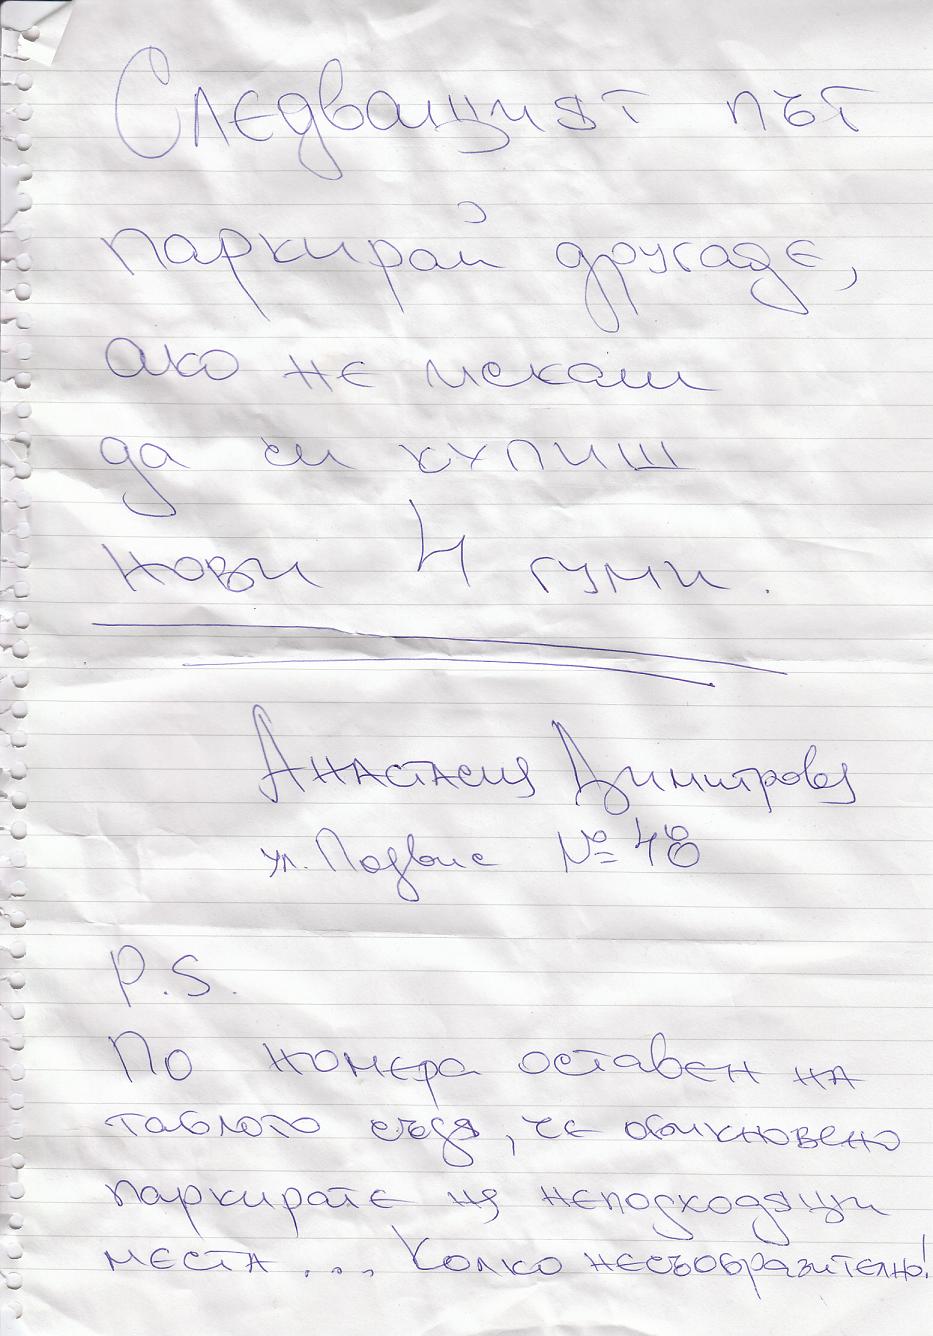 Следващият път
паркирай другаде,
ако не искаш
да си купиш
нови 4 гуми.
Анастасия Димитрова
ул. Подвис № 48
P.S.
По номера оставен на
таблото съдя, че обикновено
паркирате на неподходящи
места... Колко несъобразително!